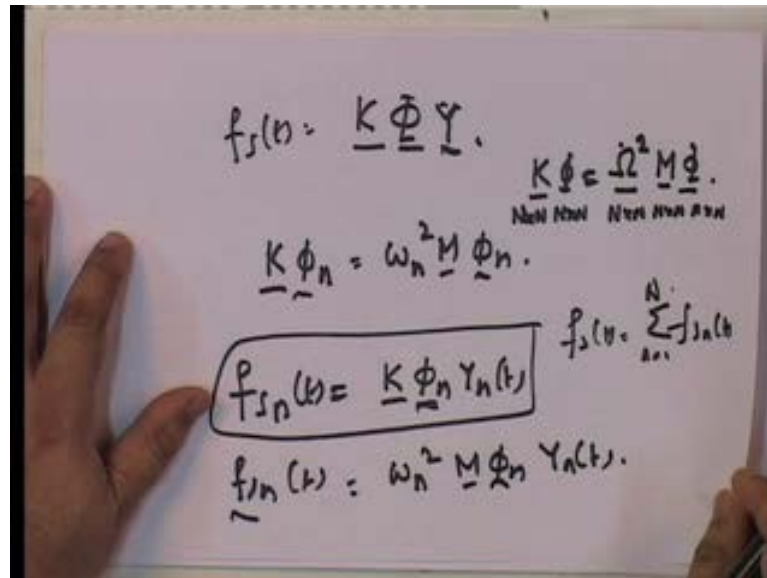 fs(t) = K Φ Y.
K Φ = Ω² M Φ.
N×N N×N N×N N×N N×N
K ϕn = ωn² M ϕn.
fs(t) = Σ n=1 N fsn(t)
fsn(t) = K ϕn Yn(t)
fsn(t) = ωn² M ϕn Yn(t).